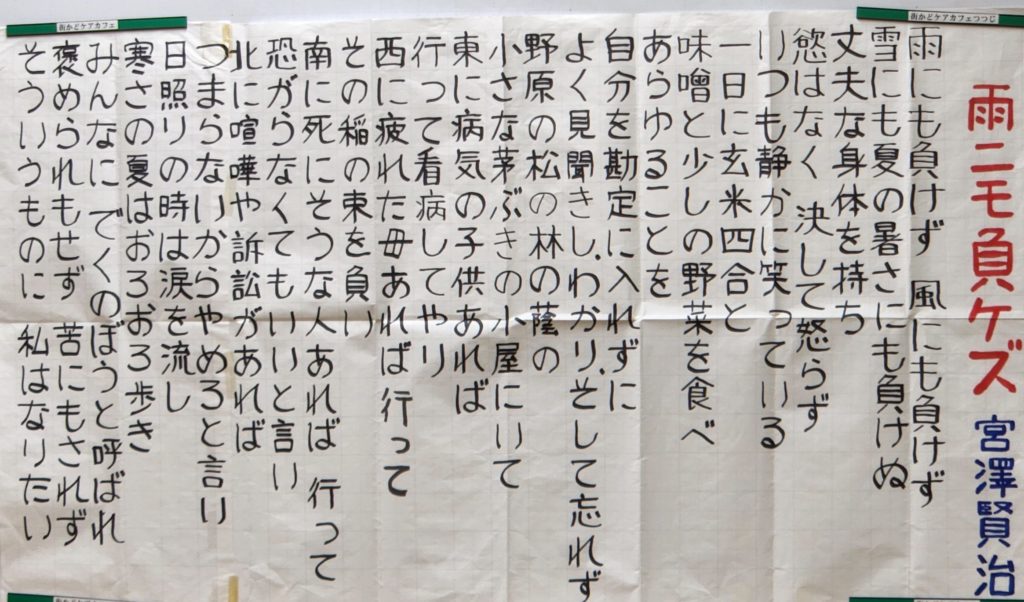 雨ニモ負ケズ 宮澤賢治
雨にも負けず 風にも負けず
雪にも夏の暑さにも負けぬ
丈夫な身体を持ち
慾はなく 決して怒らず
いつも静かに笑っている
一日に玄米四合と
味噌と少しの野菜を食べ
あらゆることを
自分を勘定に入れずに
よく見聞きし、わかり、そして忘れず
野原の松の林の蔭の
小さな茅ぶきの小屋にいて
東に病気の子供あれば
行って看病してやり
西に疲れた母あれば 行って
その稲の束を負い
南に死にそうな人あれば 行って
恐がらなくてもいいと言い
北に喧嘩や訴訟があれば
つまらないからやめろと言い
日照りの時は涙を流し
寒さの夏はおろおろ歩き
みんなに でくのぼうと呼ばれ
褒められもせず 苦にもされず
そういうものに 私はなりたい
街かどケアカフェ
街かどケアカフェつつじ